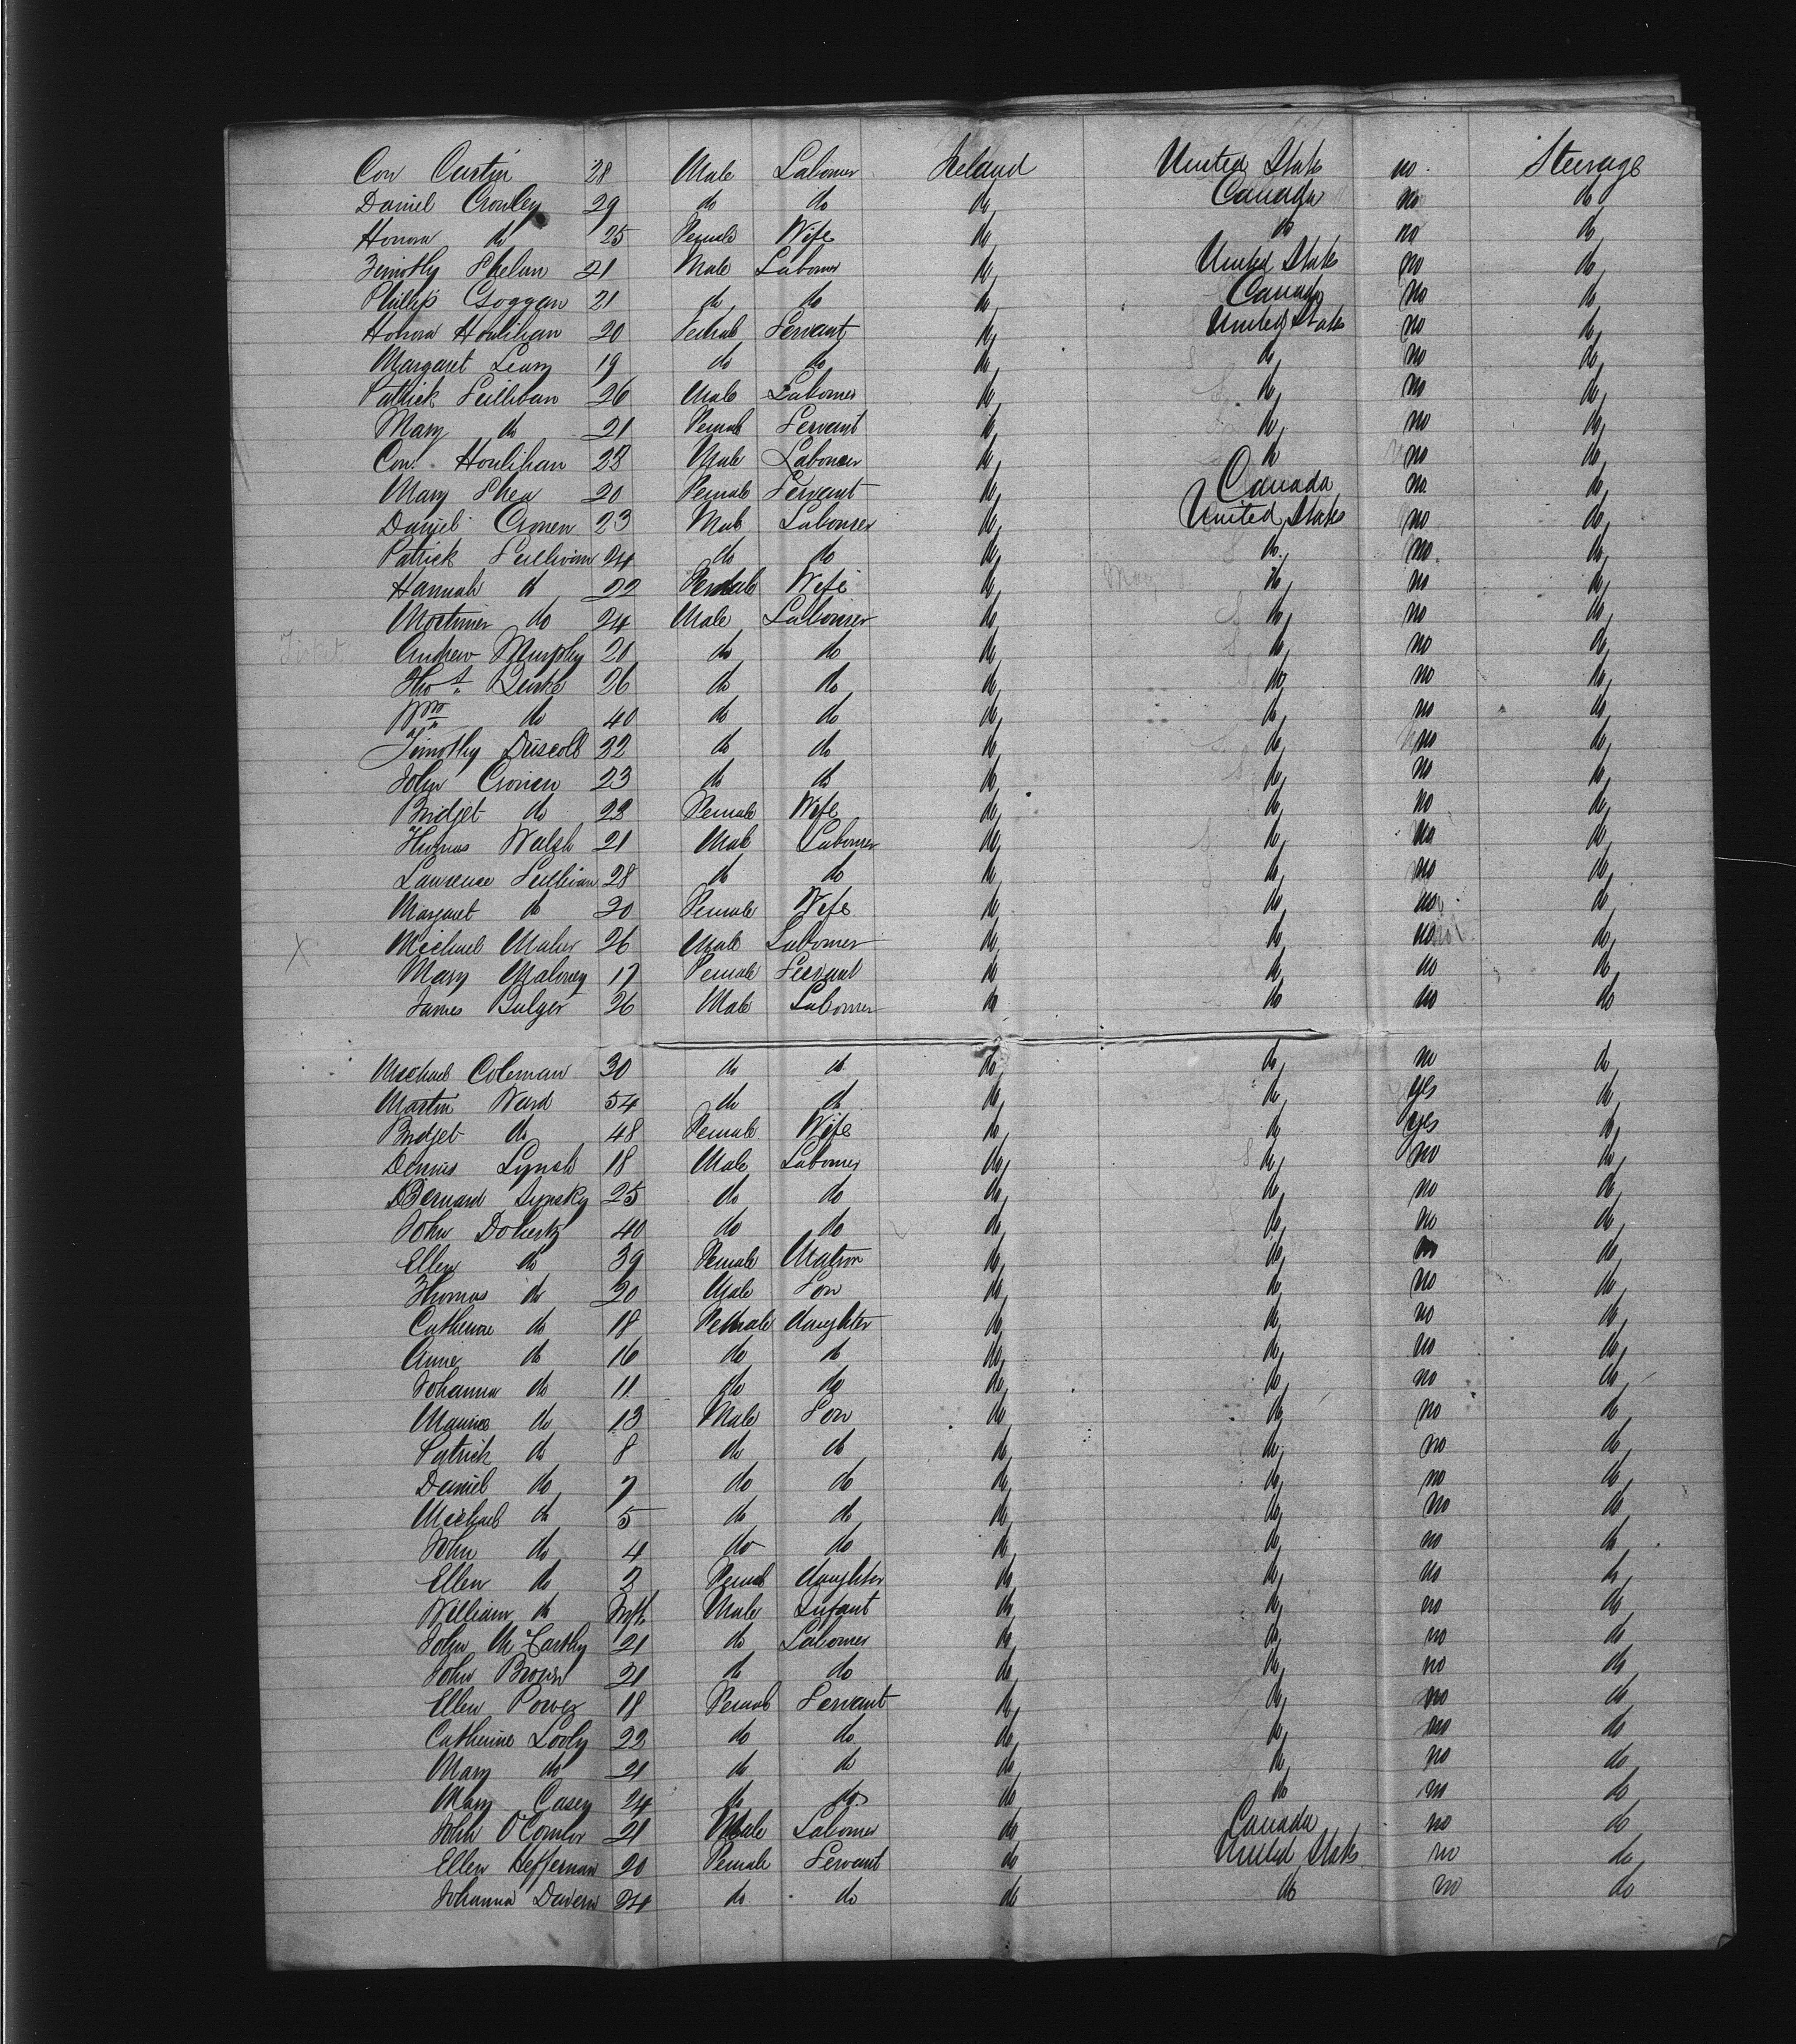 Con Curtin 28 Male Labourer Ireland United States no Steerage
Daniel Crowley 29 do do do Canada no do
Honora do 25 Female Wife do do no do
Timothy Phelan 21 Male Labourer do United States no do
Philip Goggan 21 do do do Canada no do
Honora Houlihan 20 Female Servant do United States no do
Margaret Leary 19 do do do do no do
Patrick Sullivan 26 Male Labourer do do no do
Mary do 21 Female Servant do do no do
Con. Houlihan 23 Male Labourer do do no do
Mary Shea 20 Female Servant do Canada no do
Daniel Cronen 23 Male Labourer do United States no do
Patrick Sullivan 24 do do do do no do
Hannah do 22 Female Wife do do no do
Mortimer do 24 Male Labourer do do no do
Andrew Murphy 20 do do do do no do
Thos. Burke 26 do do do do no do
Wm do 40 do do do do no do
Timothy Driscoll 32 do do do do no do
John Cronen 23 do do do do no do
Bridget do 23 Female Wife do do no do
Thomas Walsh 21 Male Labourer do do no do
Laurence Sullivan 28 do do do do no do
Margaret do 20 Female Wife do do no do
X Michael Maher 26 Male Labourer do do no do
Mary Maloney 17 Female Servant do do no do
James Bulger 26 Male Labourer do do no do
Michael Coleman 30 do do do do no do
Martin Ward 54 do do do do yes do
Bridget do 48 Female Wife do do yes do
Dennis Lynch 18 Male Labourer do do no do
Bernard Lynsky 25 do do do do no do
John Doherty 40 do do do do no do
Ellen do 39 Female Matron do do no do
Thomas do 20 Male Son do do no do
Catherine do 18 Female daughter do do no do
Anne do 16 do do do do no do
Johanna do 11 do do do do no do
Maurice do 13 Male Son do do no do
Patrick do 8 do do do do no do
Daniel do 7 do do do do no do
Michael do 5 do do do do no do
John do 4 do do do do no do
Ellen do 3 Female daughter do do no do
William do Male Infant do do no do
John McCarthy 21 do Labourer do do no do
John Brown 21 do do do do no do
Ellen Power 18 Female Servant do do no do
Catherine Looly 22 do do do do no do
Mary do 21 do do do do no do
Mary Casey 24 do do do do no do
John O'Connor 21 Male Labourer do Canada no do
Ellen Heffernan 20 Female Servant do United States no do
Johanna Davern 24 do do do do no do